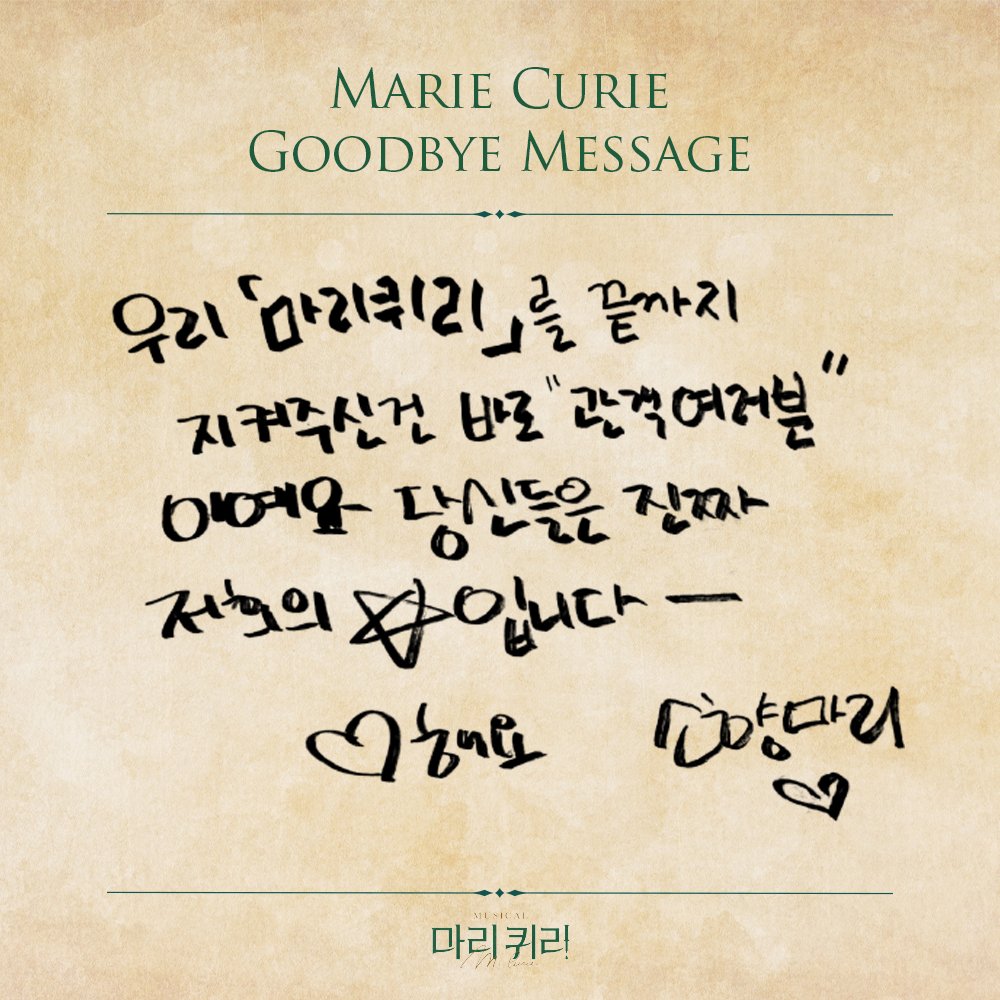 MARIE CURIE
GOODBYE MESSAGE
우리 「마리퀴리」를 끝까지
지켜주신건 바로 "관객여러분"
이예요 당신들은 진짜
저희의 ☆입니다 —
♡해요 양마리
♡
MUSICAL
마리 퀴리